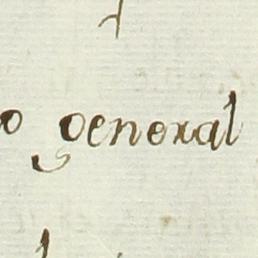 o general